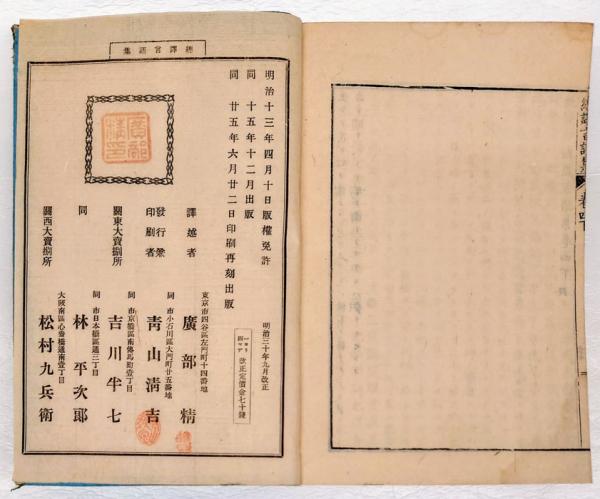 總譯言語集
明治十三年四月十日版權免許
同 十五年十二月出版
同 廿五年六月廿二日印刷再刻出版
廣部精印
明治三十年九月改正
改正定價金七十錢
譯述者 東京市四谷區左門町十四番地 廣部精
發行兼印刷者 同市小石川區大門町廿五番地 青山淸吉
關東大賣捌所 同市京橋區南傳馬町壹丁目 吉川半七
同 同市日本橋區通三丁目 林平次郎
關西大賣捌所 大阪南區心齋橋通南壹丁目 松村九兵衛
卷四下